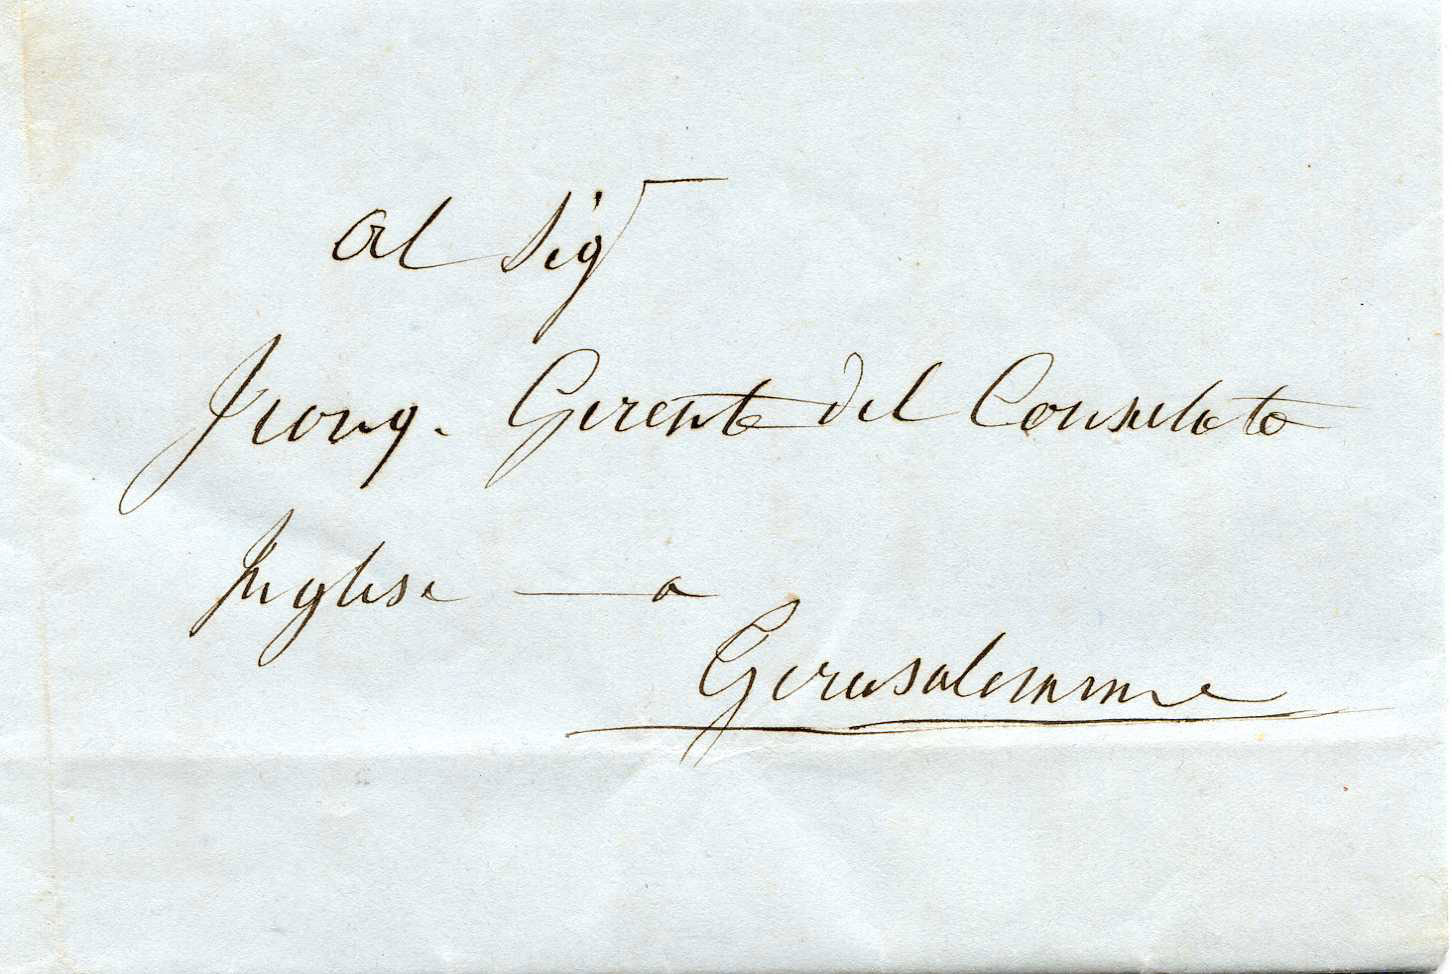 Al Sigr
Gerente del Consolato
Inglese — a
Gerusalemme